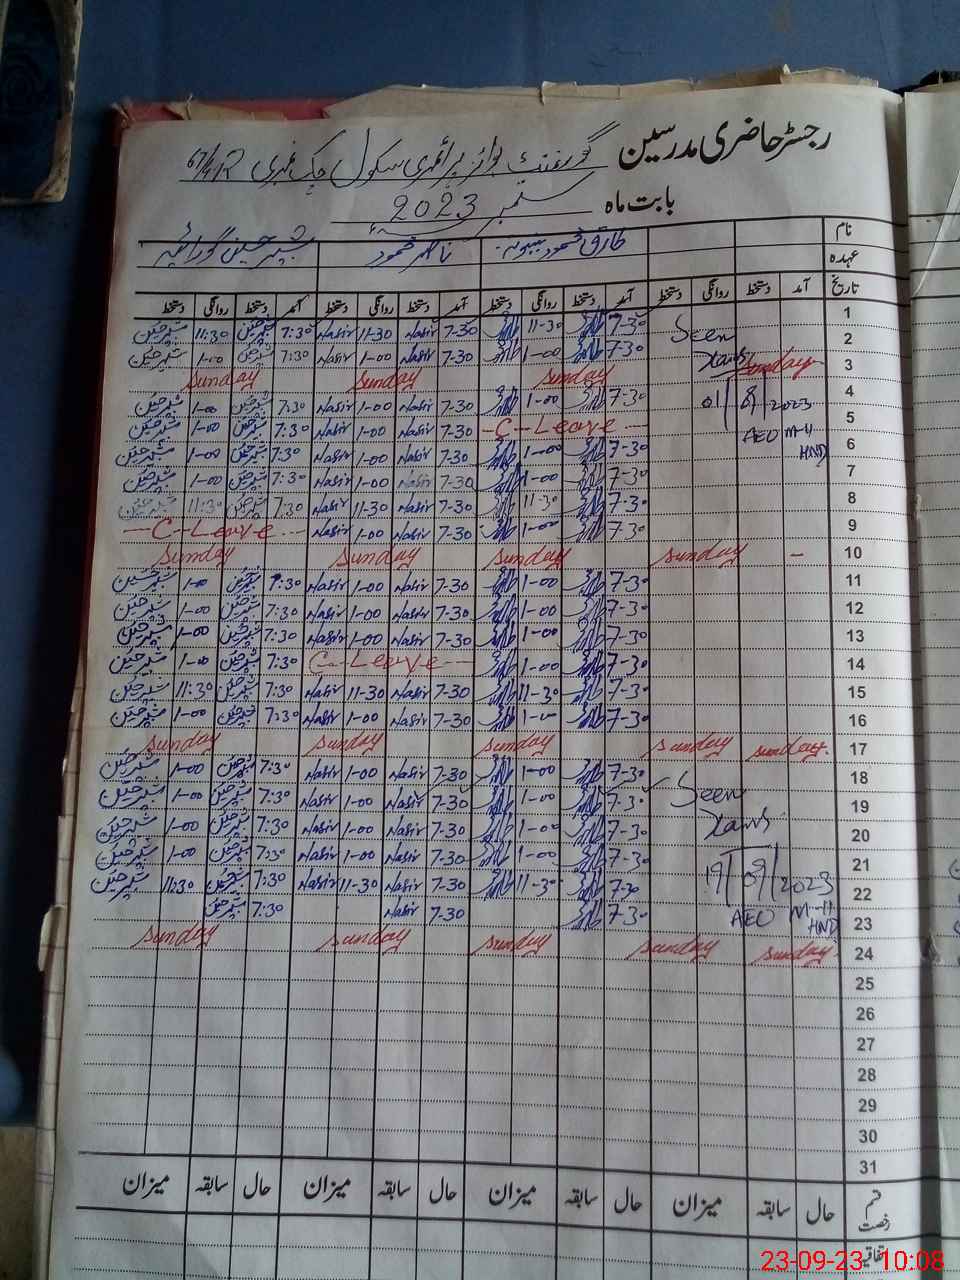 رجسٹر حاضری مدرسین گورنمنٹ بوائز پرائمری سکول چک نمبری 67/4/R
بابت ماہ ستمبر 2023ء
نام طارق محمود ناصر محمود شبیر حسین گورائیہ
عہدہ
تاریخ آمد دستخط روانگی دستخط آمد دستخط روانگی دستخط آمد دستخط روانگی دستخط آمد دستخط روانگی دستخط
1 Seen 7-30 طارق 11-30 طارق 7-30 Nasir 11-30 Nasir 7:30 شبیر حسین 11:30 شبیر حسین
2 7-30 طارق 1-00 طارق 7-30 Nasir 1-00 Nasir 7:30 شبیر حسین 1-00 شبیر حسین
3 Sunday Sunday Sunday Sunday
4 01/09/2023 7-30 طارق 1-00 طارق 7-30 Nasir 1-00 Nasir 7:30 شبیر حسین 1-00 شبیر حسین
5 AEO M-11 -C-Leave- 7-30 Nasir 1-00 Nasir 7:30 شبیر حسین 1-00 شبیر حسین
6 HND 7-30 طارق 1-00 طارق 7-30 Nasir 1-00 Nasir 7:30 شبیر حسین 1-00 شبیر حسین
7 7-30 طارق 1-00 طارق 7-30 Nasir 1-00 Nasir 7:30 شبیر حسین 1-00 شبیر حسین
8 7-30 طارق 11-30 طارق 7-30 Nasir 11-30 Nasir 7:30 شبیر حسین 11:30 شبیر حسین
9 7-30 طارق 1-00 طارق 7-30 Nasir 1-00 Nasir -C-Leave-
10 - Sunday Sunday Sunday Sunday
11 7-30 طارق 1-00 طارق 7-30 Nasir 1-00 Nasir 7:30 شبیر حسین 1-00 شبیر حسین
12 7-30 طارق 1-00 طارق 7-30 Nasir 1-00 Nasir 7:30 شبیر حسین 1-00 شبیر حسین
13 7-30 طارق 1-00 طارق 7-30 Nasir 1-00 Nasir 7:30 شبیر حسین 1-00 شبیر حسین
14 7-30 طارق 1-00 طارق C-Leave- 7:30 شبیر حسین 1-00 شبیر حسین
15 7-30 طارق 11-30 طارق 7-30 Nasir 11-30 Nasir 7:30 شبیر حسین 11:30 شبیر حسین
16 7-30 طارق 1-00 طارق 7-30 Nasir 1-00 Nasir 7:30 شبیر حسین 1-00 شبیر حسین
17 Sunday Sunday Sunday Sunday Sunday
18 7-30 طارق 1-00 طارق 7-30 Nasir 1-00 Nasir 7:30 شبیر حسین 1-00 شبیر حسین
19 Seen 7-30 طارق 1-00 طارق 7-30 Nasir 1-00 Nasir 7:30 شبیر حسین 1-00 شبیر حسین
20 7-30 طارق 1-00 طارق 7-30 Nasir 1-00 Nasir 7:30 شبیر حسین 1-00 شبیر حسین
21 7-30 طارق 1-00 طارق 7-30 Nasir 1-00 Nasir 7:30 شبیر حسین 1-00 شبیر حسین
22 19/09/2023 7-30 طارق 11-30 طارق 7-30 Nasir 11-30 Nasir 7:30 شبیر حسین 11:30 شبیر حسین
23 AEO M-11 HND 7-30 طارق 7-30 Nasir 7:30 شبیر حسین
24 Sunday Sunday Sunday Sunday Sunday
25
26
27
28
29
30
31
قسم رخصت حال سابقہ میزان حال سابقہ میزان حال سابقہ میزان حال سابقہ میزان
اتفاقیہ
23-09-23 10:08